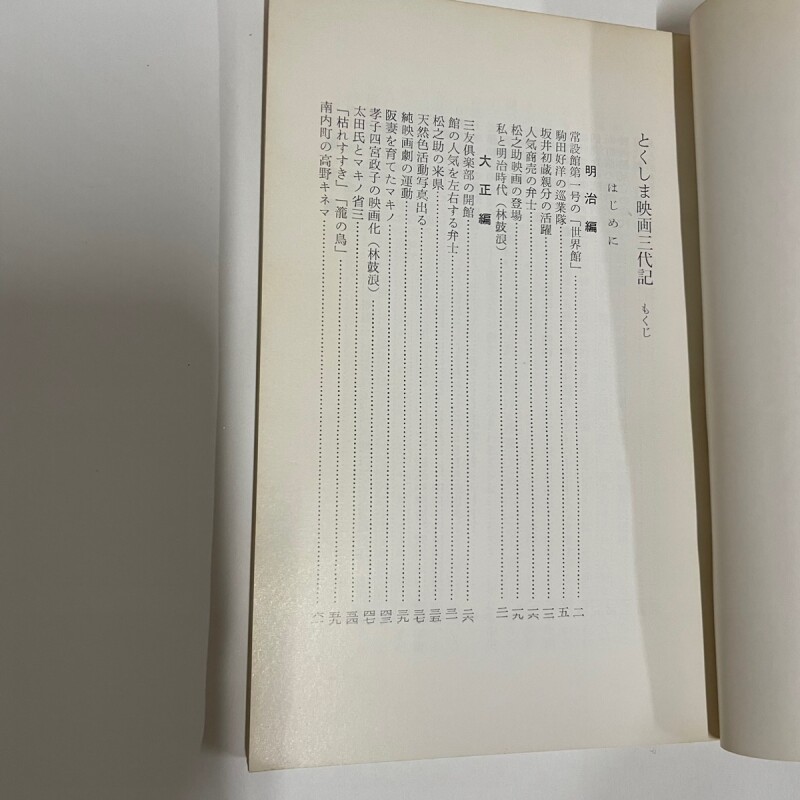 とくしま映画三代記　もくじ
はじめに
明治編
常設館第一号の「世界館」……二
駒田好洋の巡業隊……五
坂井初蔵親分の活躍……一三
人気商売の弁士……一六
松之助映画の登場……一九
私と明治時代（林鼓浪）……二一
大正編
三友倶楽部の開館……二六
館の人気を左右する弁士……三一
松之助の来県……三五
天然色活動写真出る……三七
純映画劇の運動……三九
阪妻を育てたマキノ……四三
孝子四宮政子の映画化（林鼓浪）……四七
太田氏とマキノ省三……五四
「枯れすすき」「籠の鳥」……五九
南内町の高野キネマ……六一